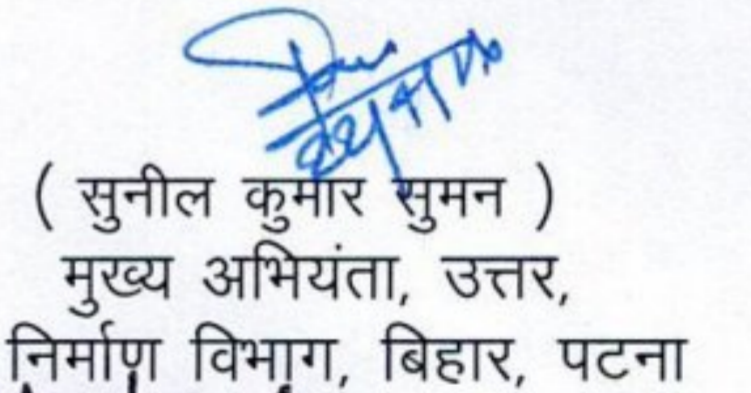 ( सुनील कुमार सुमन )
मुख्य अभियंता, उत्तर,
निर्माण विभाग, बिहार, पटना